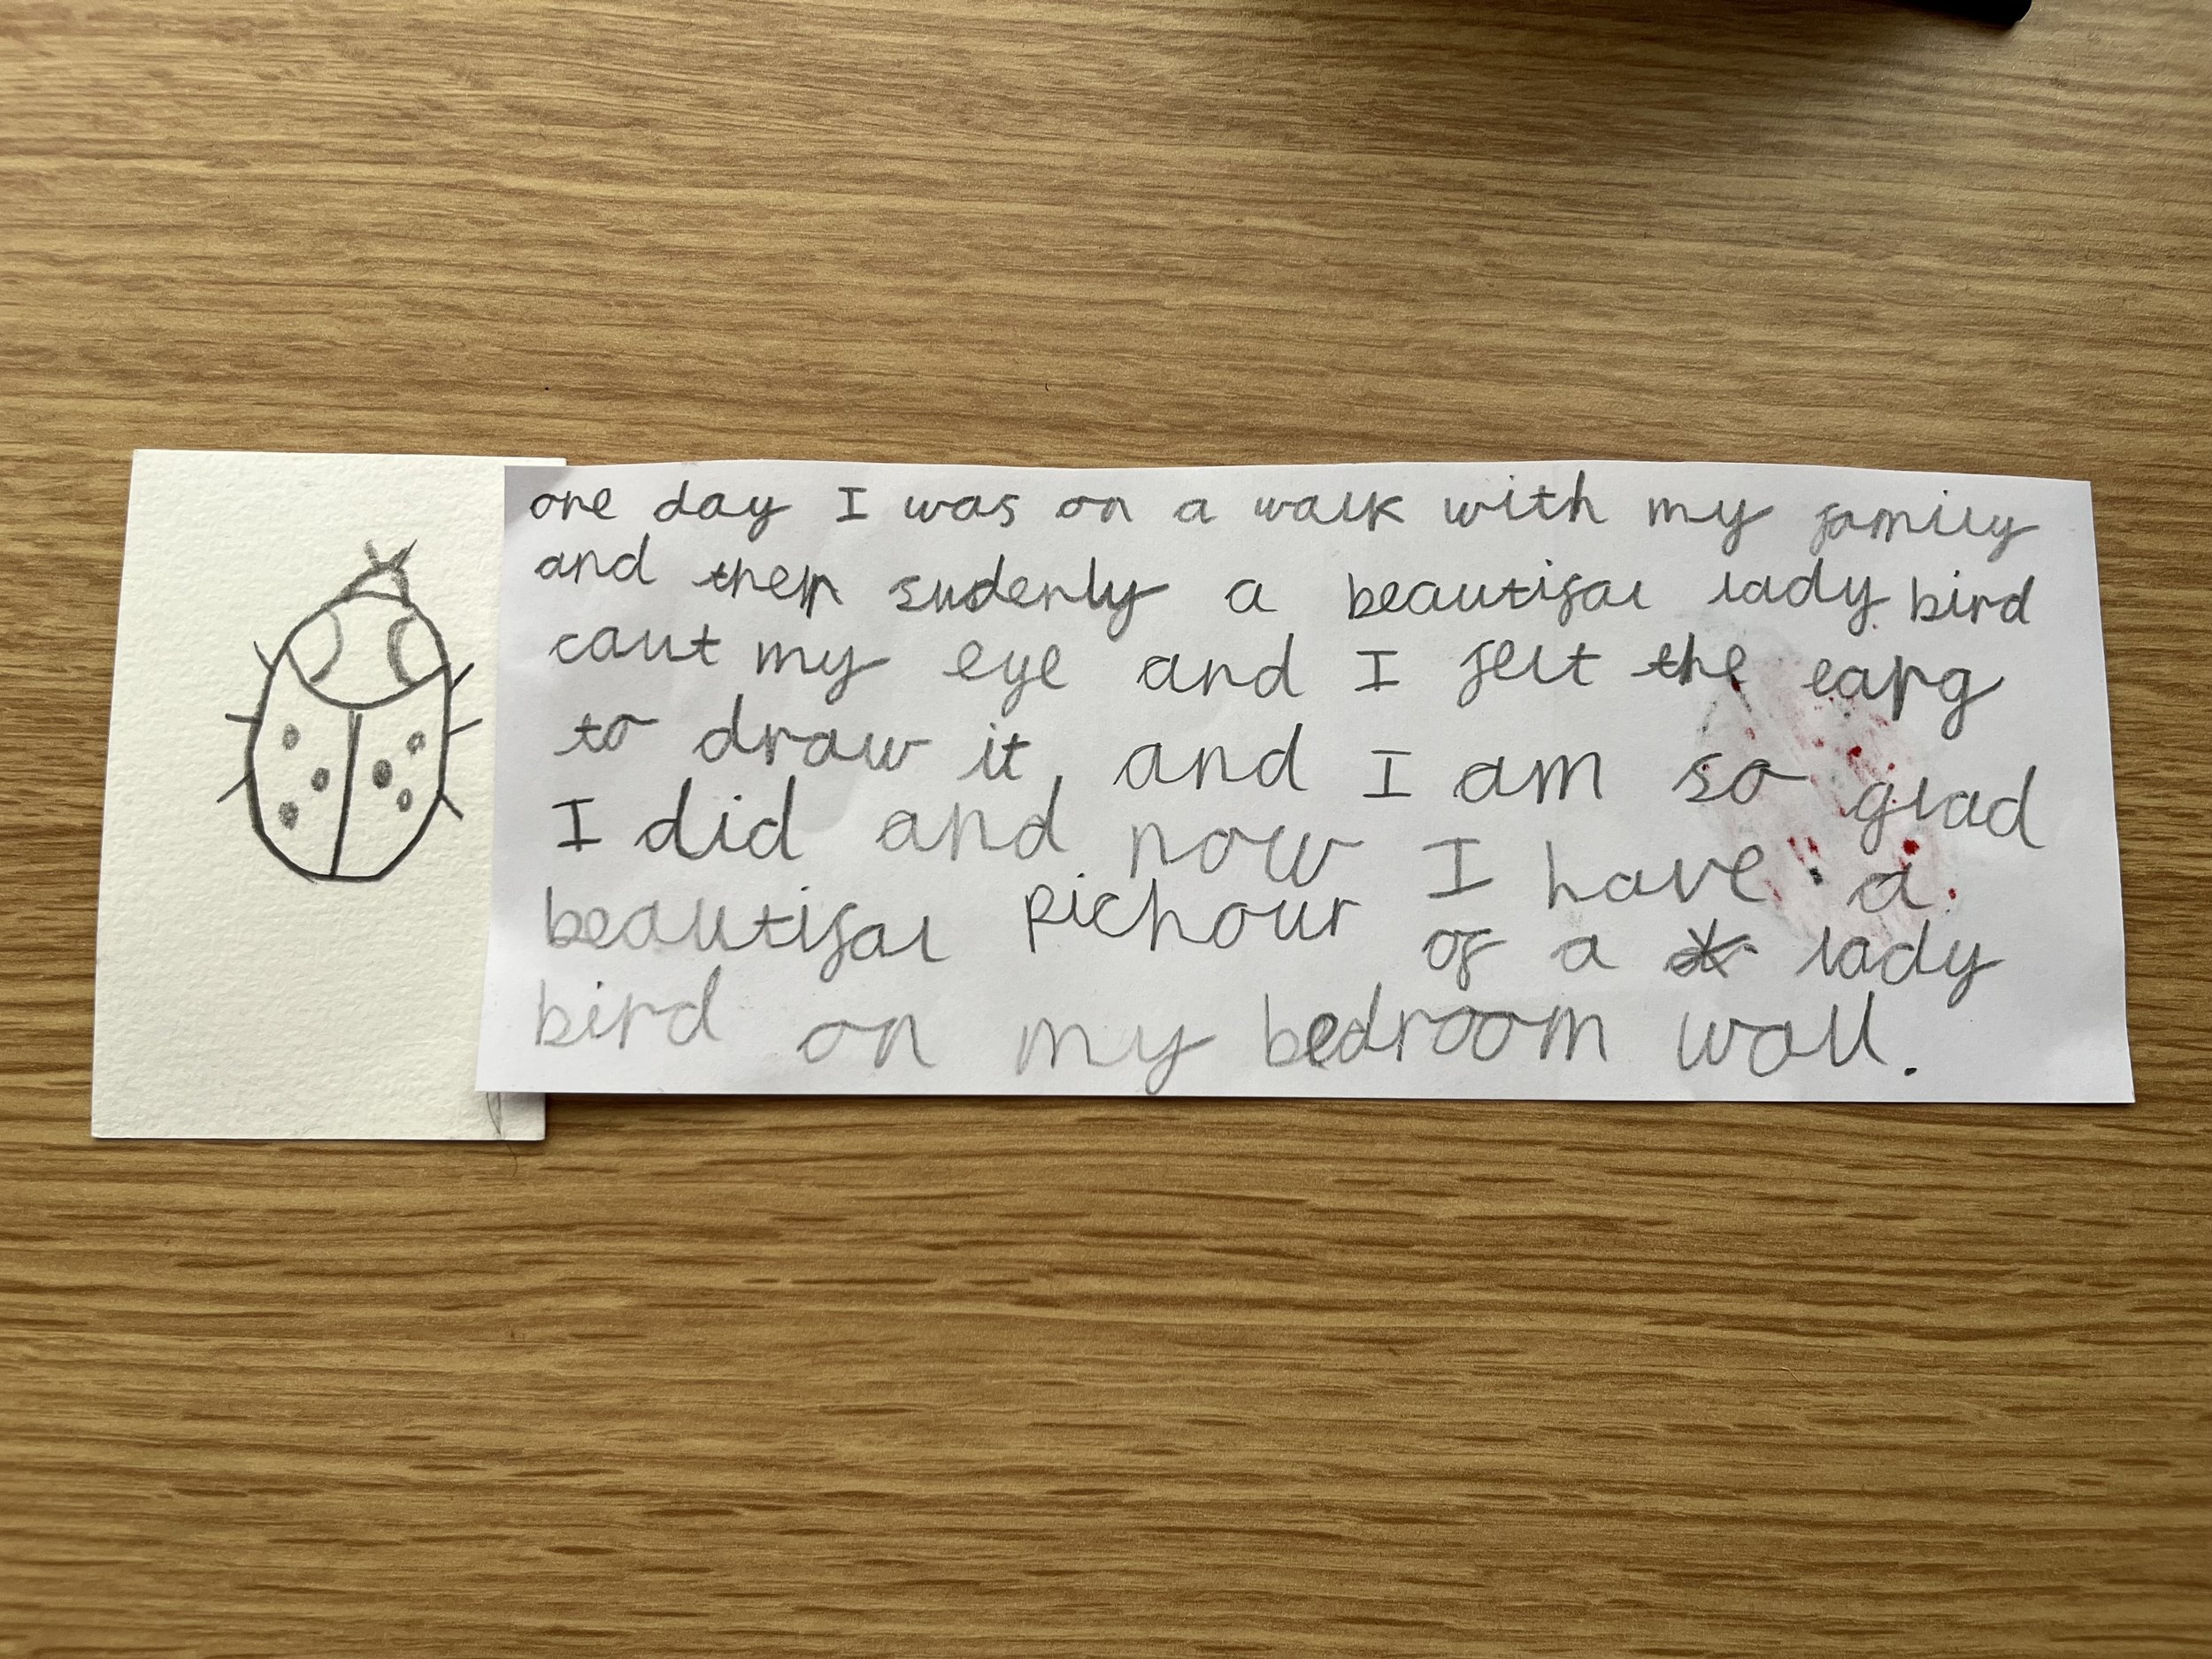 one day I was on a walk with my family
and then suderly a beautifal lady bird
caut my eye and I felt the earg
to draw it, and I am so glad
I did and now I have a
beautifal pichour of a lady
bird on my bedroom wall.